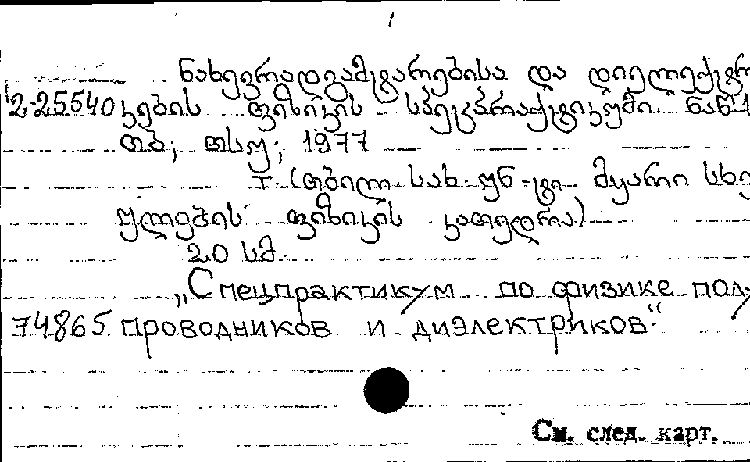 ნახევრადგამტარებისა და დიელექტრ
2-25540 კების ფიზიკის სპეცპრაქტიკუმი ნაწ 1
თბ; თსუ; 1977
(თბილ. სახ. უნ-ტი მყარი სხე
ულების ფიზიკის კათედრა)
20 სმ.
„Спецпрактикум по физике полу
74865 проводников и диэлектриков“
См. след. карт.